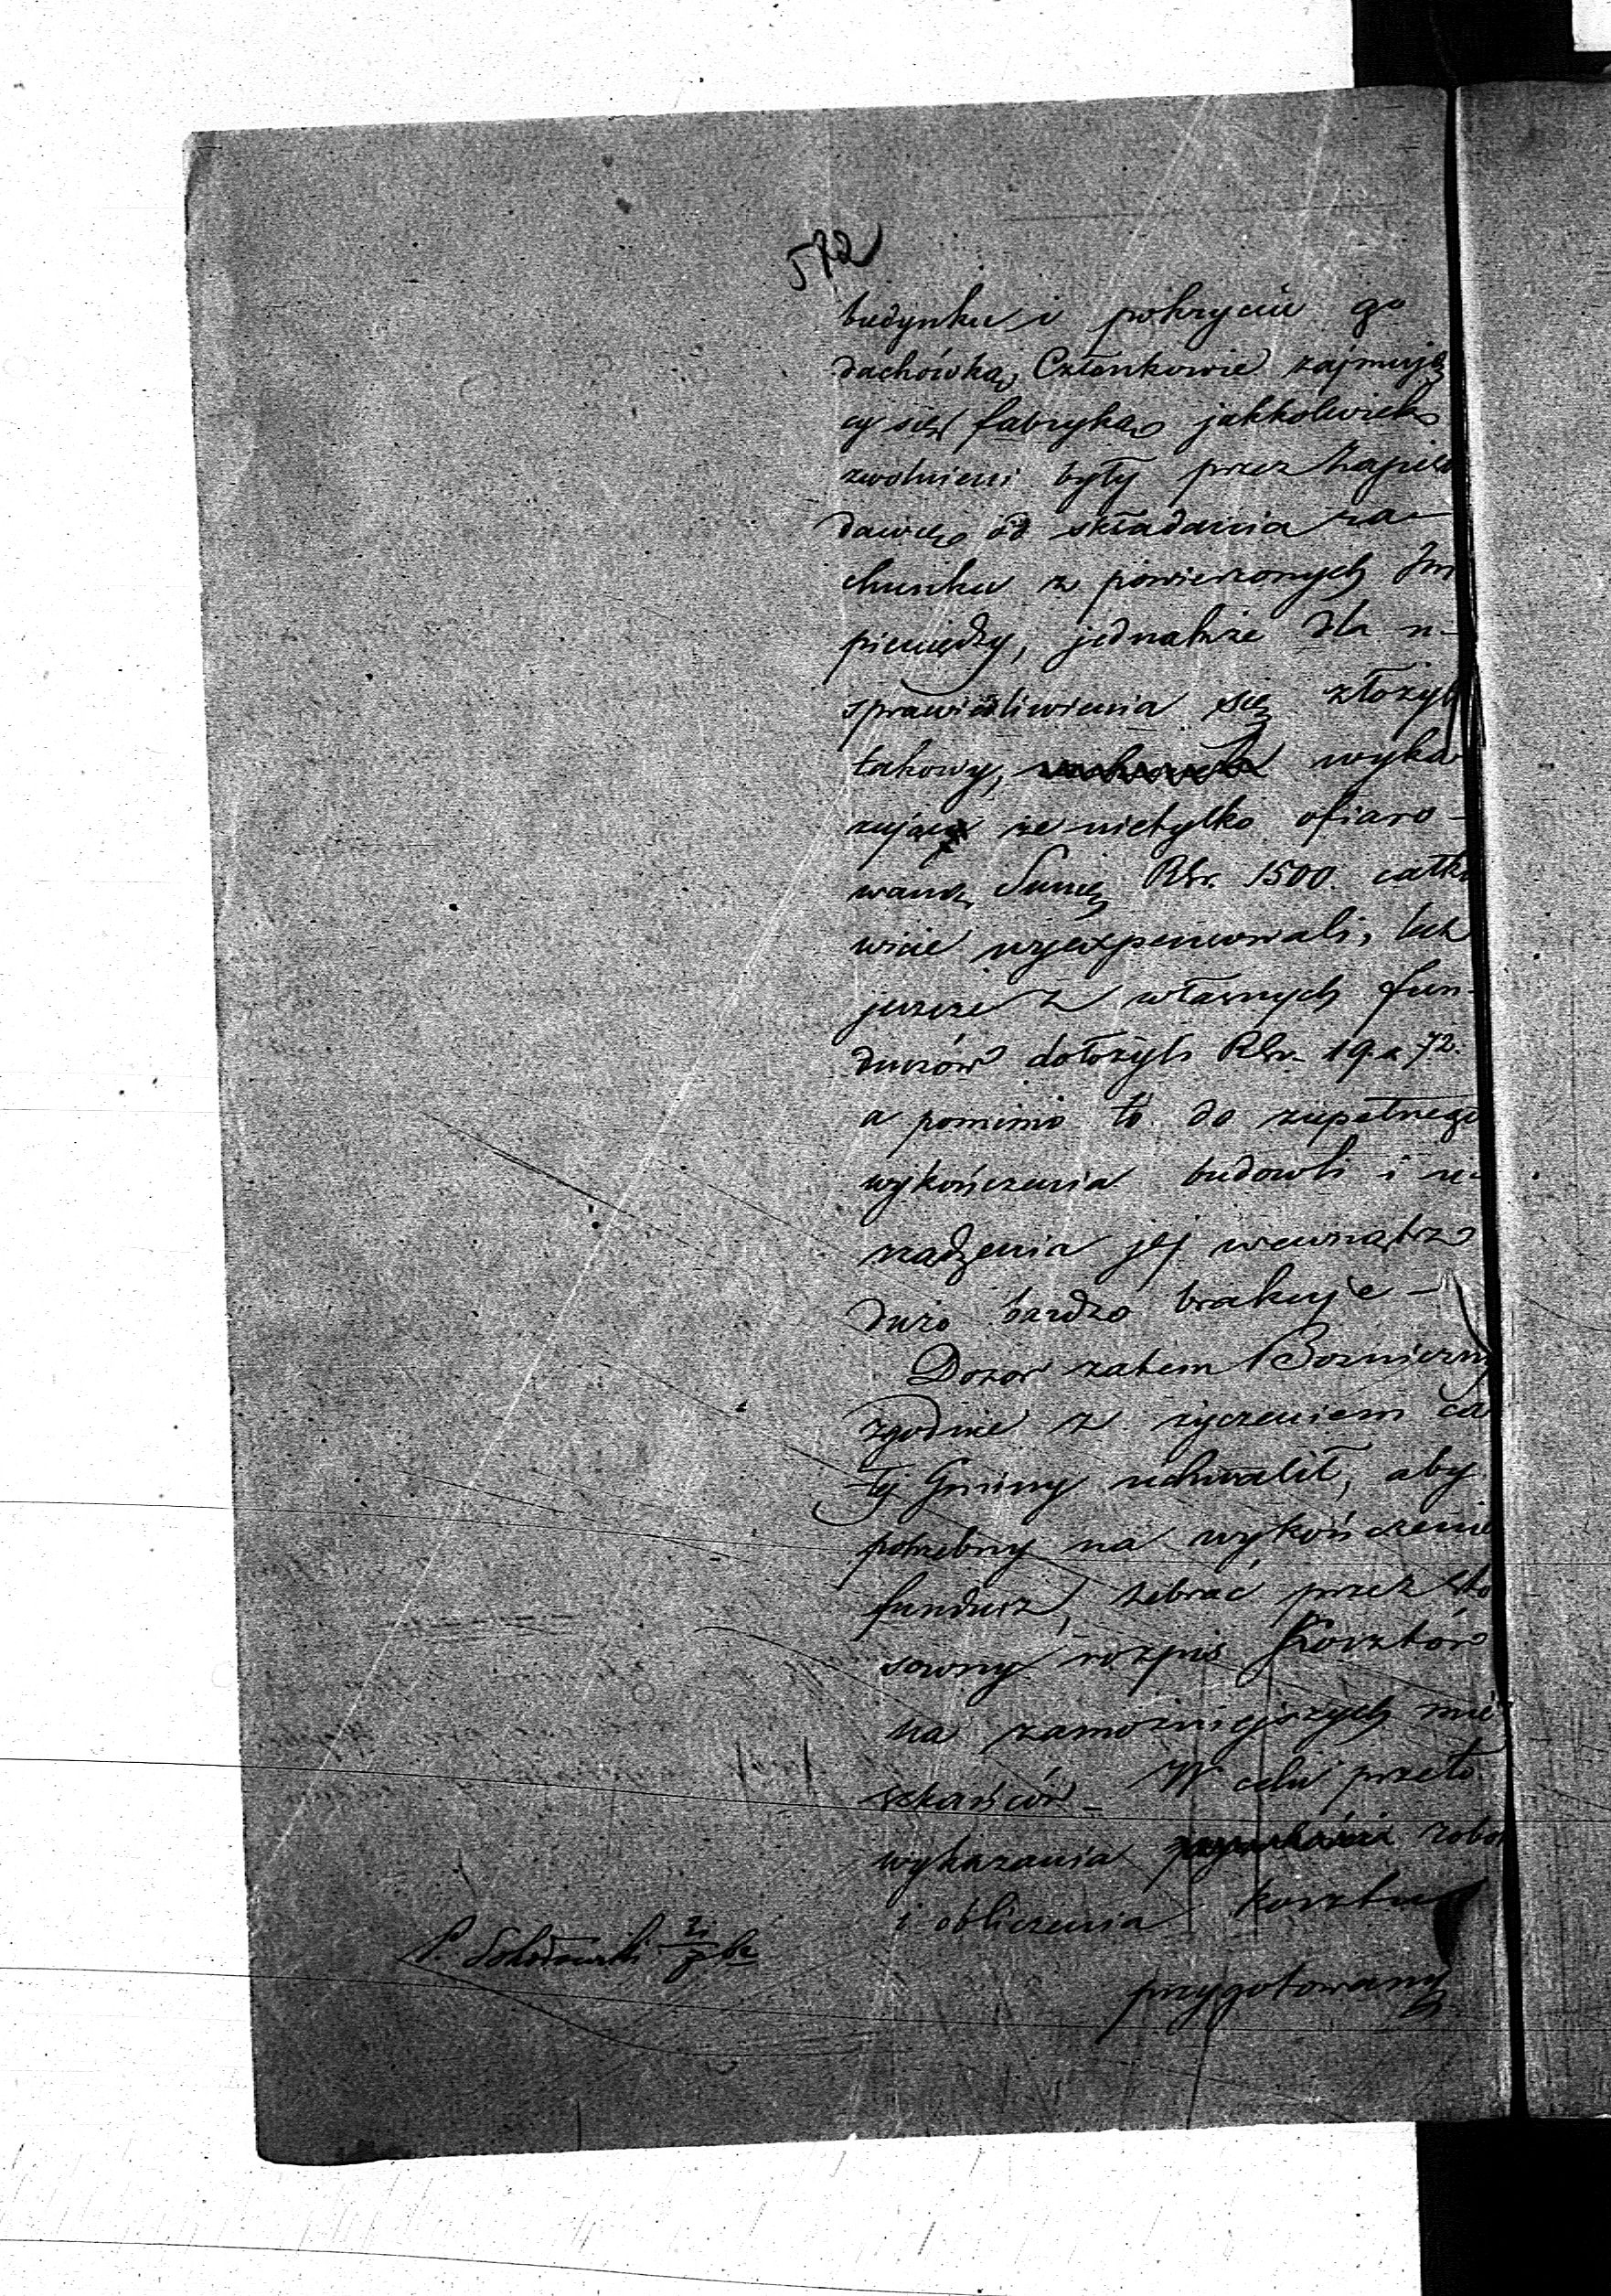 572
budynku i pokrycia go
dachówką, Członkowie zajmują
cy się fabryką jakkolwiek
zwolnieni były przez Zapiso
dawcę od składania ra-
chunku z powierzonych Im
pieniędzy, jednakże dla u-
sprawiedliwienia się złożyli
takowy, wyka
zując że nietylko ofiaro-
waną Sumę RSr. 1500. całko
wicie wyexpensowali, lecz
jeszcze z własnych fun-
duszów dołożyli RSr. 19 k 72.
a pomimo to do zupełnego
wykończenia budowli i u-
rządzenia jej wewnątrz
dużo bardzo brakuje -
Dozór zatem Bożniczny
zgodnie z życzeniem ca
łej Gminy uchwalił, aby
potrzebny na wykończenie
fundusz, zebrać przez sto
sowny rozpis Kosztów
na zamożniejszych mie
szkańców - W celu przeto
wykazania robót
i obliczenia kosztu
przygotowany